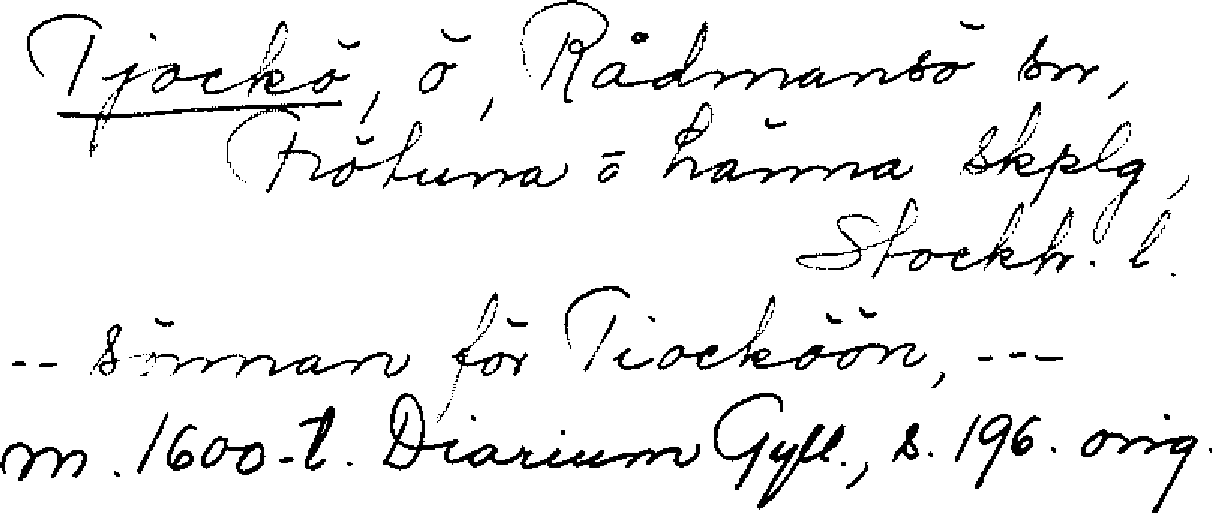 Tjockö, ö, Rådmansö sn,
Frötuna o Länna skplg,
Stockh. l.
-- sönnan för Tiocköön, ---
m. 1600-t. Diarium Gyll., s. 196. orig.